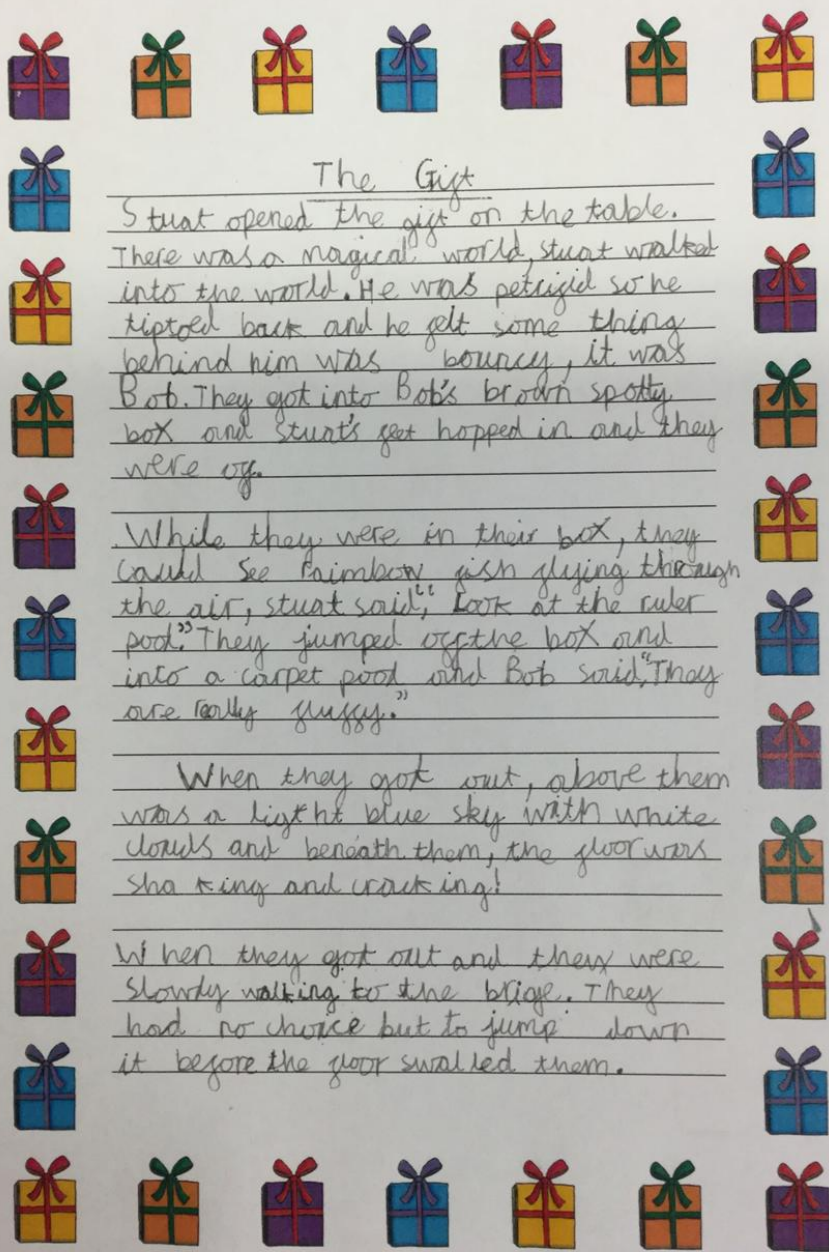 The Gift
Stuat opened the gift on the table.
There was a magical world, stuat walked
into the world. He was petrifid so he
tiptoed back and he felt some thing
behind him was bouncy, it was
Bob. They got into Bob's brown spotty
box and stuat's feet hopped in and they
were off.
While they were in their box, they
could see raimbow fish flying through
the air, stuat said," Look at the ruler
pool." They jumped off the box and
into a carpet pool and Bob said,"They
are really fluffy."
When they got out, above them
was a ligtht blue sky with white
clouds and beneath them, the floor was
shaking and cracking!
When they got out and they were
slowly walking to the brige. They
had no choice but to jump down
it before the floor swalled them.